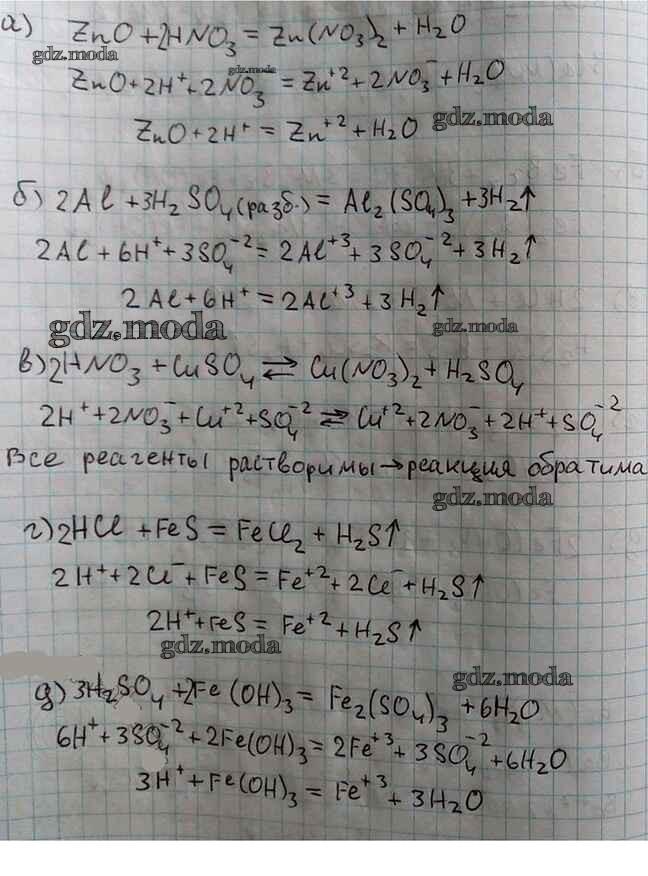 а) ZnO + 2HNO₃ = Zn(NO₃)₂ + H₂O
gdz.moda
gdz.moda
ZnO + 2H⁺ + 2NO₃⁻ = Zn⁺² + 2NO₃⁻ + H₂O
ZnO + 2H⁺ = Zn⁺² + H₂O
gdz.moda
б) 2Al + 3H₂SO₄(разб.) = Al₂(SO₄)₃ + 3H₂↑
2Al + 6H⁺ + 3SO₄⁻² = 2Al⁺³ + 3SO₄⁻² + 3H₂↑
2Al + 6H⁺ = 2Al⁺³ + 3H₂↑
gdz.moda
gdz.moda
в) 2HNO₃ + CuSO₄ ⇄ Cu(NO₃)₂ + H₂SO₄
2H⁺ + 2NO₃⁻ + Cu⁺² + SO₄⁻² ⇄ Cu⁺² + 2NO₃⁻ + 2H⁺ + SO₄⁻²
Все реагенты растворимы → реакция обратима
gdz.moda
г) 2HCl + FeS = FeCl₂ + H₂S↑
2H⁺ + 2Cl⁻ + FeS = Fe⁺² + 2Cl⁻ + H₂S↑
2H⁺ + FeS = Fe⁺² + H₂S↑
gdz.moda
gdz.moda
д) 3H₂SO₄ + 2Fe(OH)₃ = Fe₂(SO₄)₃ + 6H₂O
6H⁺ + 3SO₄⁻² + 2Fe(OH)₃ = 2Fe⁺³ + 3SO₄⁻² + 6H₂O
3H⁺ + Fe(OH)₃ = Fe⁺³ + 3H₂O